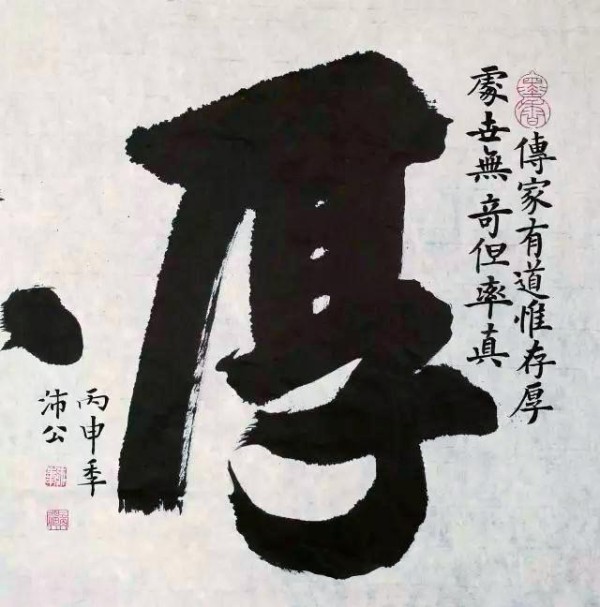 墨香
傳家有道惟存厚
處世無奇但率真
厚
丙申年
沛公